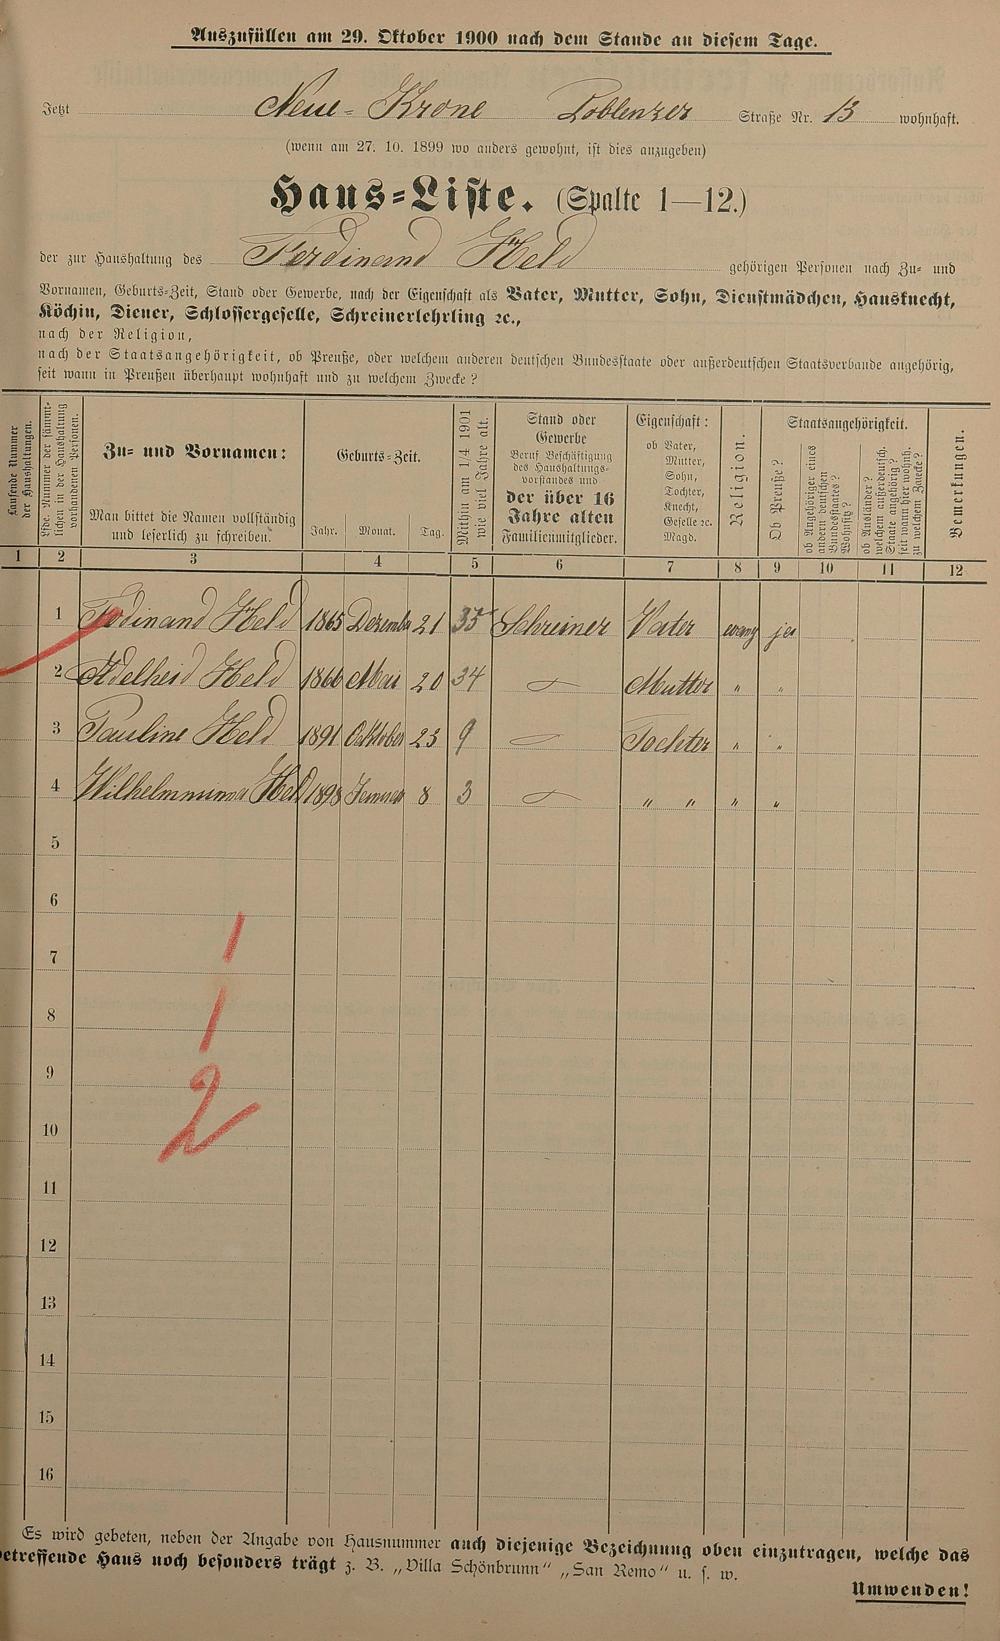 Auszufüllen am 29. Oktober 1900 nach dem Stande an diesem Tage.
Jetzt Neue-Krone Coblenzer Straße Nr. 13 wohnhaft.
(wenn am 27. 10. 1899 wo anders gewohnt, ist dies anzugeben)
Haus-Liste. (Spalte 1—12.)
der zur Haushaltung des Ferdinand Held gehörigen Personen nach Zu- und
Vornamen, Geburts-Zeit, Stand oder Gewerbe, nach der Eigenschaft als Vater, Mutter, Sohn, Dienstmädchen, Hausknecht,
Köchin, Diener, Schlossergeselle, Schreinerlehrling ꝛc.,
nach der Religion,
nach der Staatsangehörigkeit, ob Preuße, oder welchem anderen deutschen Bundesstaate oder außerdeutschen Staatsverbande angehörig,
seit wann in Preußen überhaupt wohnhaft und zu welchem Zwecke?
Laufende Nummer
der Haushaltungen.
Lfde. Nummer der sämmt-
lichen in der Haushaltung
vorhandenen Personen.
Zu- und Vornamen:
Man bittet die Namen vollständig
und leserlich zu schreiben.
Geburts-Zeit.
Jahr. Monat. Tag.
Mithin am 1/4 1901
wie viel Jahre alt.
Stand oder
Gewerbe
Beruf Beschäftigung
des Haushaltungs-
vorstandes und
der über 16
Jahre alten
Familienmitglieder.
Eigenschaft:
ob Vater,
Mutter,
Sohn,
Tochter,
Knecht,
Geselle ꝛc.
Magd.
Religion.
Staatsangehörigkeit.
Ob Preuße?
ob Angehöriger eines
andern deutschen
Bundesstaates?
Wohnsitz?
ob Ausländer?
welchem außerdeutsch.
Staate angehörig?
seit wann hier wohnh.
zu welchem Zwecke?
Bemerkungen.
1 2 3 4 5 6 7 8 9 10 11 12
1 Ferdinand Held 1865 Dezember 21 35 Schreiner Vater evang ja
2 Adelheid Held 1866 Mai 20 34 Mutter " "
3 Pauline Held 1891 Oktober 23 9 Tochter " "
4 Wilhelmmina Held 1898 Januar 8 3 " " " "
5
6
7
8
9
10
11
12
13
14
15
16
1
1
2
Es wird gebeten, neben der Angabe von Hausnummer auch diejenige Bezeichnung oben einzutragen, welche das
betreffende Haus noch besonders trägt z. B. „Villa Schönbrunn" „San Remo" u. s. w.
Umwenden!